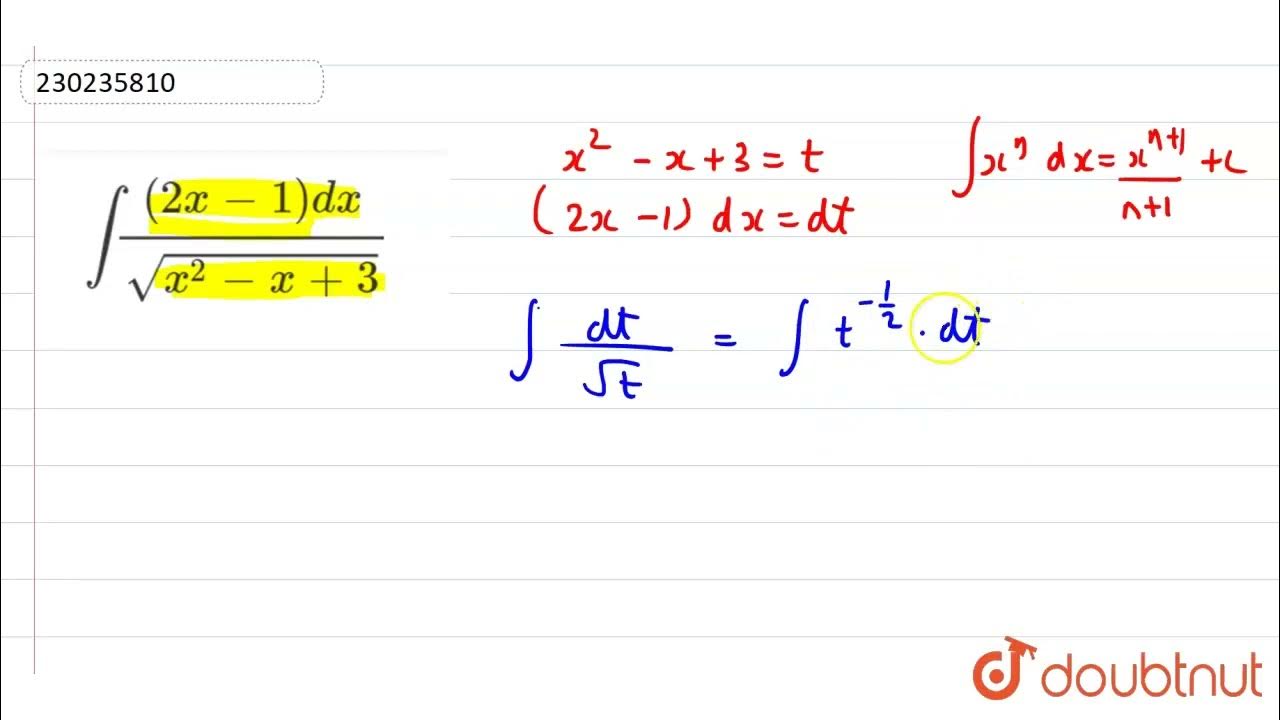 230235810
∫ (2x − 1)dx / √(x² − x + 3)
x² − x + 3 = t
(2x − 1) dx = dt
∫xⁿ dx = xⁿ⁺¹ / n+1 + c
∫ dt / √t = ∫ t^(−1/2) · dt
doubtnut